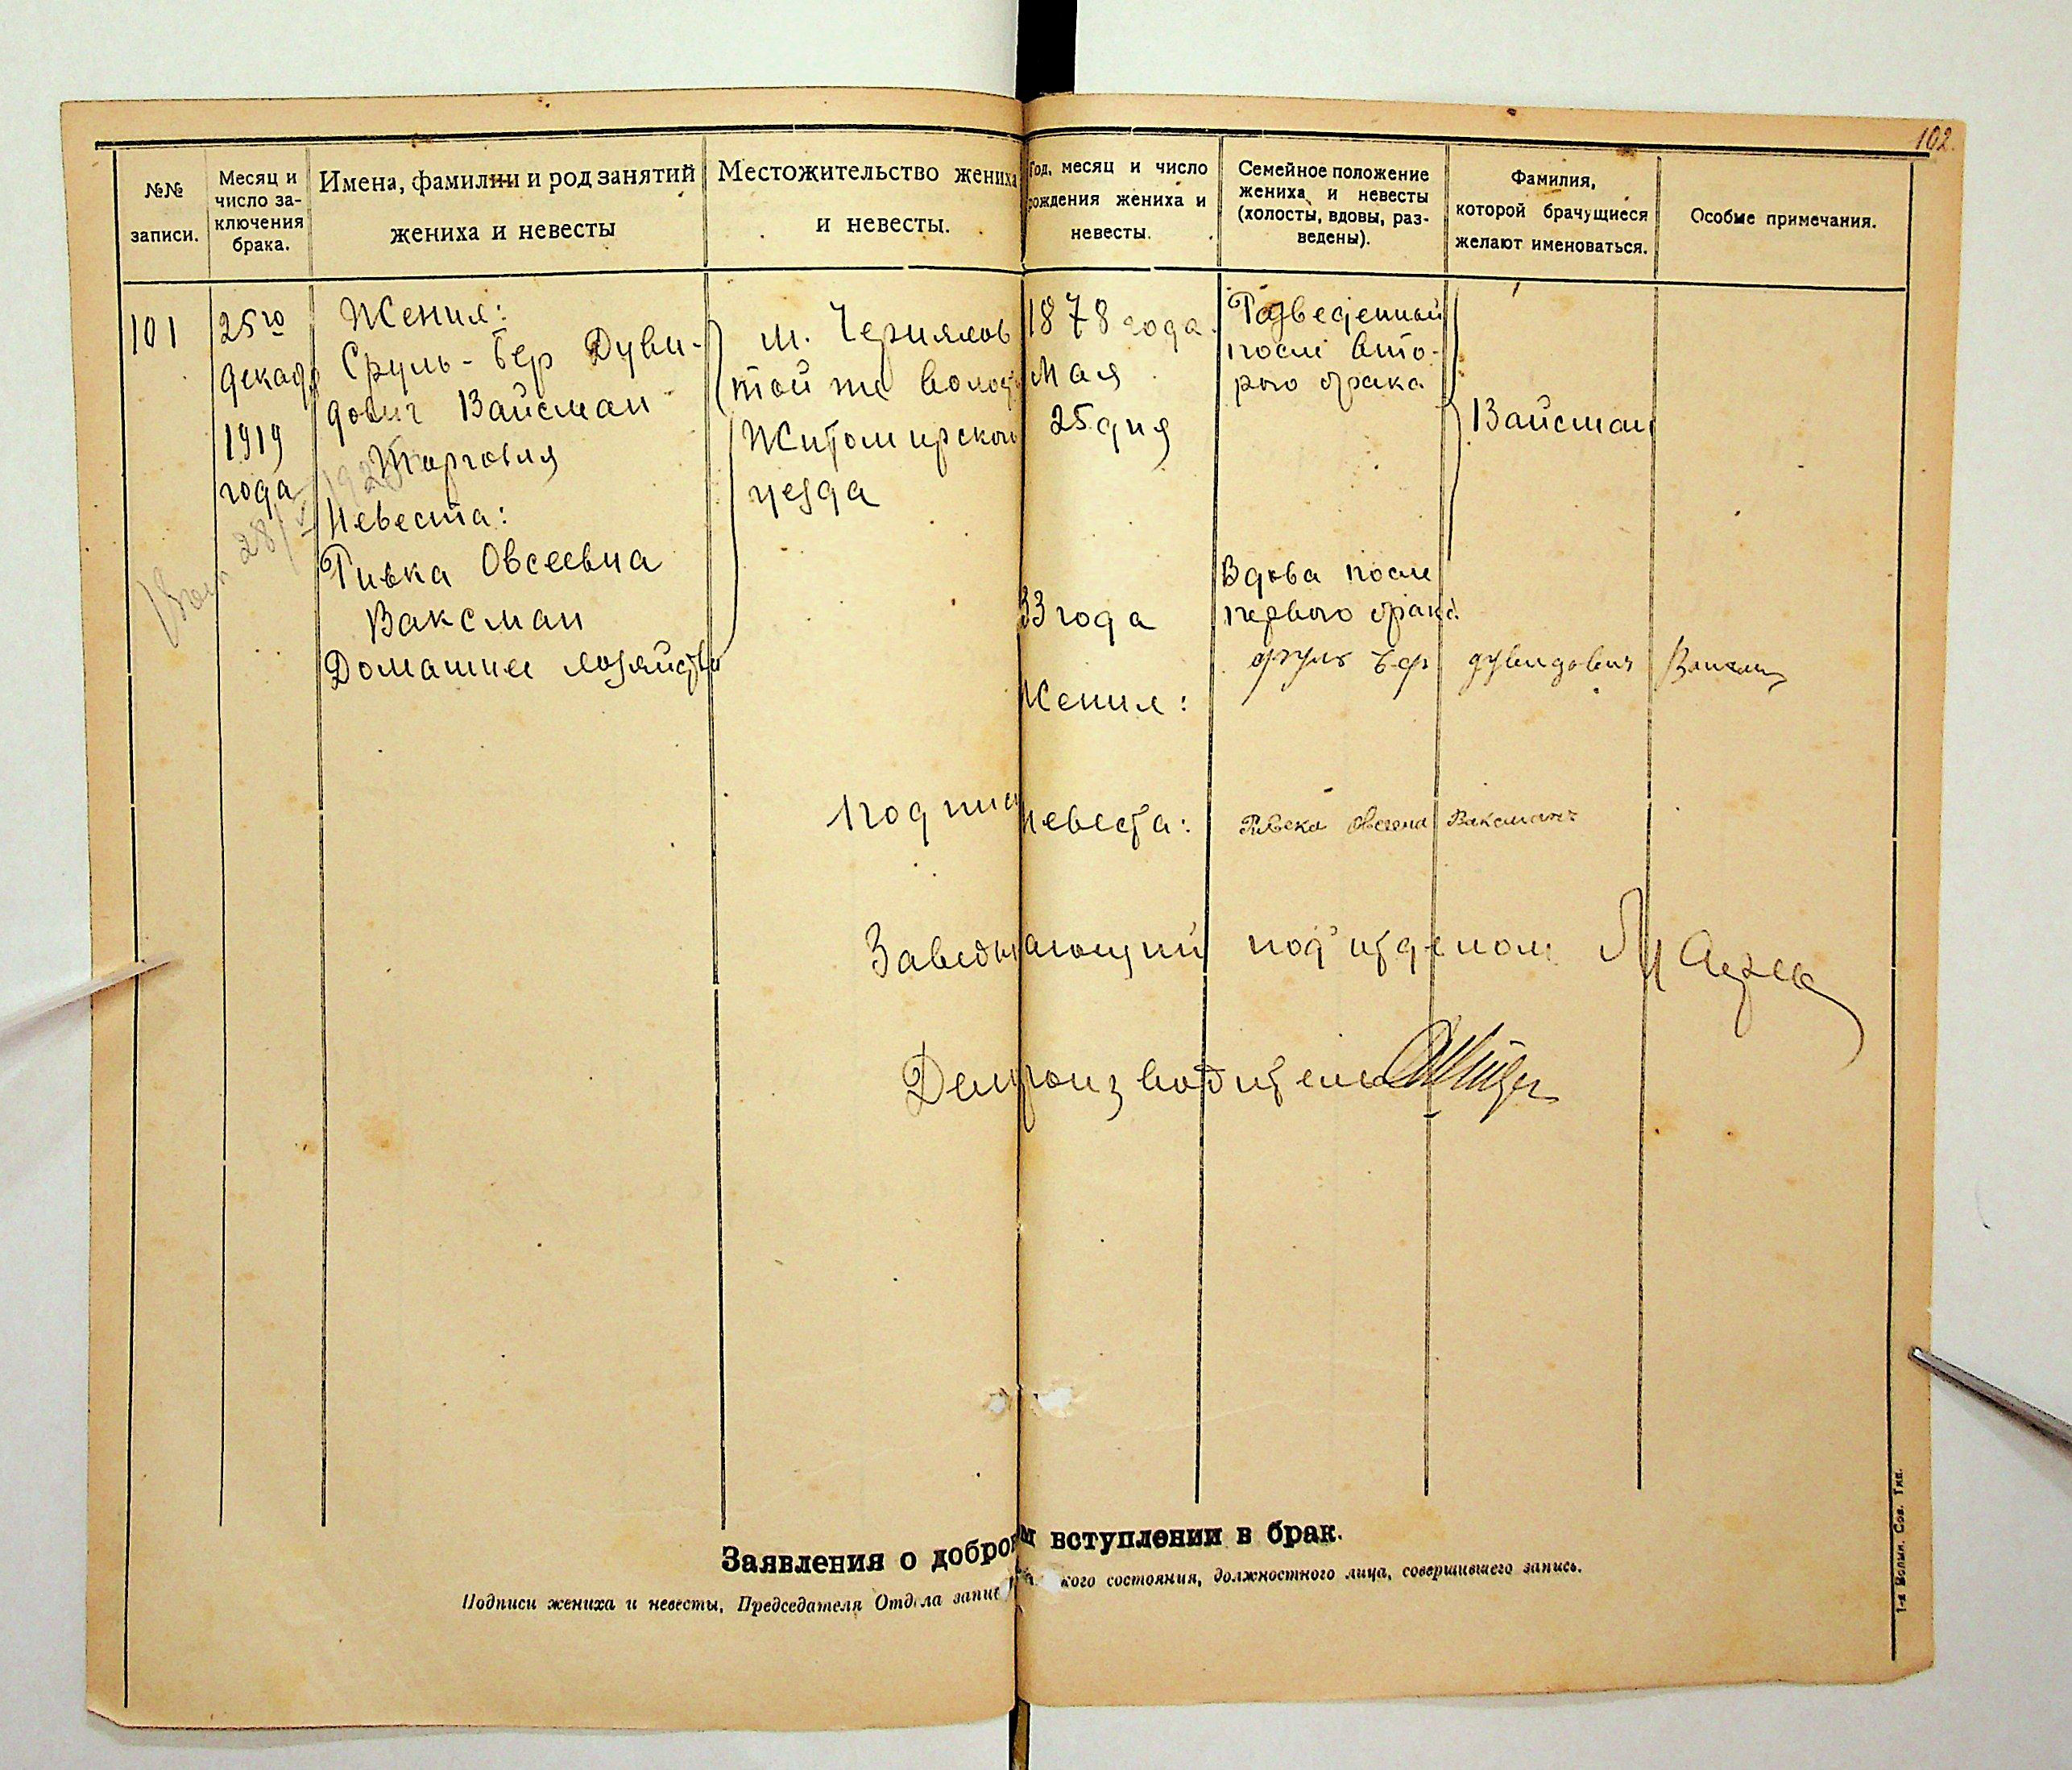 102.
№№
записи.
Месяц и
число за-
ключения
брака.
Имена, фамилии и род занятий
жениха и невесты
Местожительство жениха
и невесты.
Год, месяц и число
рождения жениха и
невесты.
Семейное положение
жениха и невесты
(холосты, вдовы, раз-
ведены).
Фамилия,
которой брачущиеся
желают именоваться.
Особые примечания.
101
25го
декаб
1919
года
Жених:
Сруль-Бер Дуви-
дович Вайсман
Торговля
Невеста:
Ривка Овсеевна
Ваксман
Домашнее хозяйство
м. Черняхов
той же волос
Житомирского
уезда
1878 года
Мая
25 дня
33 года
Разведенный
после вто-
рого брака
Вдова после
первого брака
Вайсман
28/VI 1923
Жених:
Сруль Бер Дувидович Вайсман
Подписи
Невеста:
Ривека Овсеена Ваксманъ
Заведывающий под'отделом
Делопроизводитель
Заявления о добров м вступлении в брак.
Подписи жениха и невесты, Председателя Отдела запис кого состояния, должностного лица, совершившего запись.
1-я Волын. Сов. Тип.